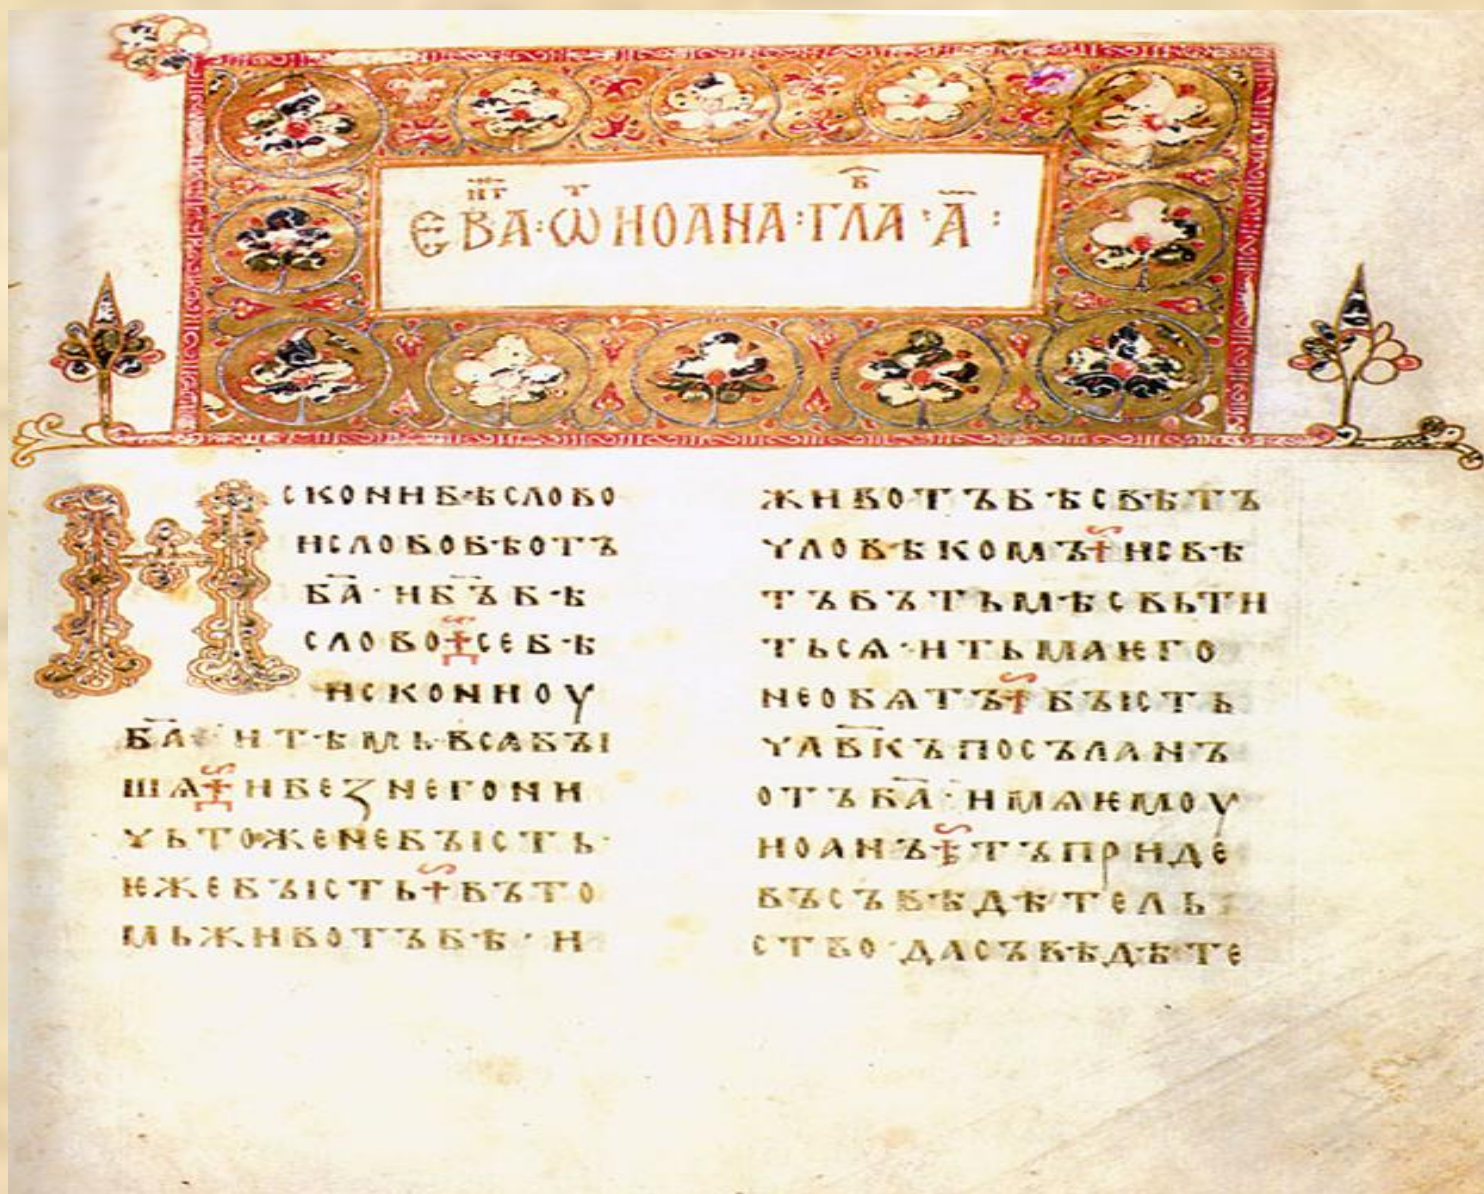 ЕВ҃А:ѠТИОАНА:ГЛВА·А҃:
ИСКОНИБѢСЛОВО
ИСЛОВОБѢОТЪ
БА҃·ИБЪ҃БѢ
СЛОВО☩СЕБѢ
ИСКОНИОУ
БА҃·ИТѢМЬВСѦБЪІ
ШѦ☩ИБЕꙀНЕГОНИ
ЧЬТОЖЕНЕБЪІСТЬ·
ѤЖЕБЪІСТЬ☩ВЪТО
МЬЖИВОТЪБѢ·И
ЖИВОТЪБѢСВѢТЪ
ЧЛОВѢКОМЪ☩ИСВѢ
ТЪВЪТЬМѢСВЬТИ
ТЬСѦ·ИТЬМАѤГО
НЕОБѦТЪ☩БЪІСТЬ
ЧЛВ҃КЪПОСЪЛАНЪ
ОТЪБА҃·ИМѦѤМОУ
ИОАНЪ☩ТЪПРИДЕ
ВЪСЪВѢДѢТЕЛЬ
СТВО·ДАСЪВѢДѢТЕ